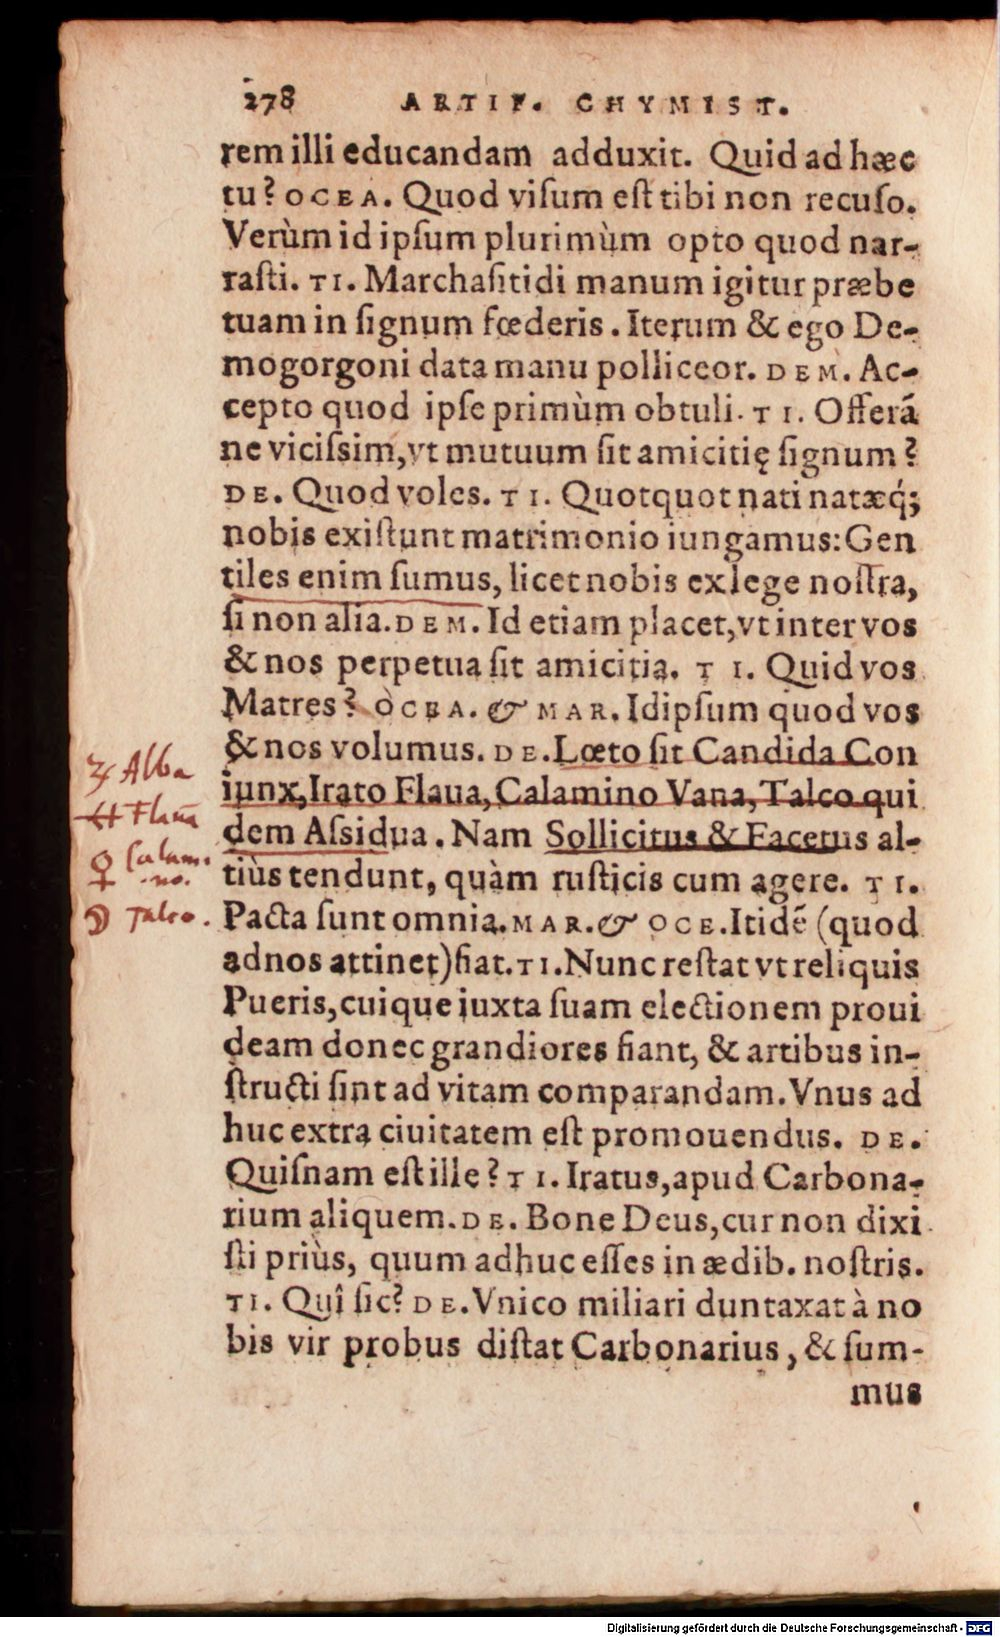 278 ARTIF. CHYMIST.
rem illi educandam adduxit. Quid ad hæc
tu? OCEA. Quod viſum eſt tibi non recuſo.
Verùm id ipſum plurimùm opto quod nar-
raſti. TI. Marchaſitidi manum igitur præbe
tuam in ſignum fœderis. Iterum & ego De-
mogorgoni data manu polliceor. DEM. Ac-
cepto quod ipſe primùm obtuli. TI. Offerā
ne viciſsim, vt mutuum ſit amicitię ſignum?
DE. Quod voles. TI. Quotquot nati natæq́;
nobis exiſtunt matrimonio iungamus: Gen
tiles enim ſumus, licet nobis ex lege noſtra,
ſi non alia. DEM. Id etiam placet, vt inter vos
& nos perpetua ſit amicitia. TI. Quid vos
Matres? OCEA. & MAR. Idipſum quod vos
& nos volumus. DE. Lœto ſit Candida Con
iunx, Irato Flaua, Calamino Vana, Talco qui
dem Aſsidua. Nam Sollicitus & Facetus al-
tiùs tendunt, quàm ruſticis cum agere. TI.
Pacta ſunt omnia. MAR. & OCE. Itidē (quod
ad nos attinet) fiat. TI. Nunc reſtat vt reliquis
Pueris, cuique iuxta ſuam electionem proui
deam donec grandiores fiant, & artibus in-
ſtructi ſint ad vitam comparandam. Vnus ad
huc extra ciuitatem eſt promouendus. DE.
Quiſnam eſt ille? TI. Iratus, apud Carbona-
rium aliquem. DE. Bone Deus, cur non dixi
ſti priùs, quum adhuc eſſes in ædib. noſtris.
TI. Quî ſic? DE. Vnico miliari duntaxat à no
bis vir probus diſtat Carbonarius, & ſum-
mus
♃ Alba
Flaua
♀ Calami
no.
☽ Talco.
Digitalisierung gefördert durch die Deutsche Forschungsgemeinschaft - DFG